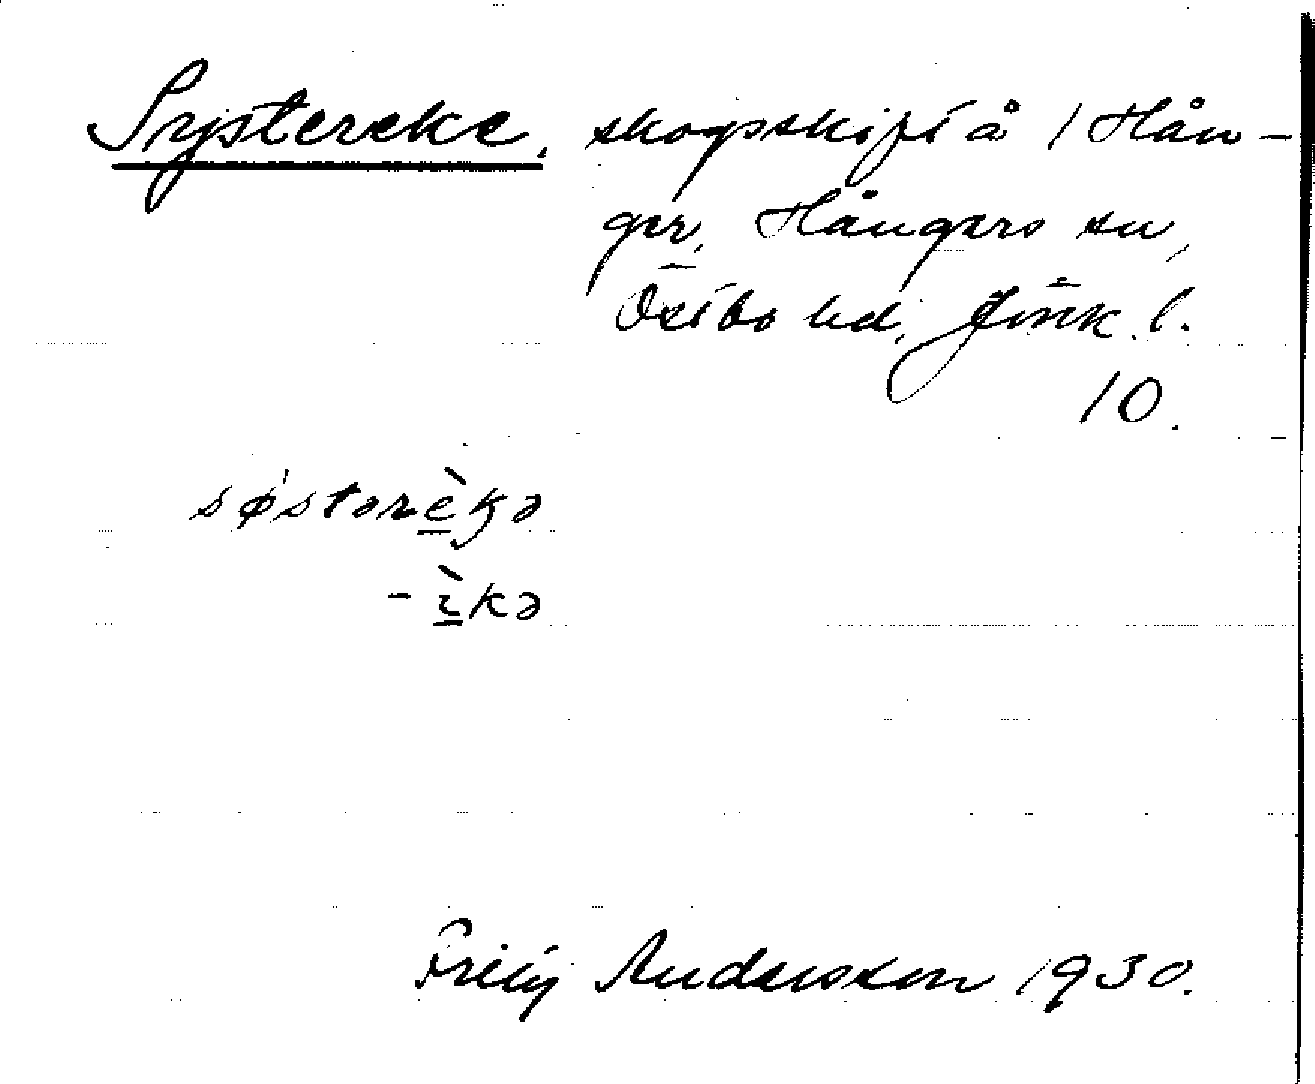 Systereke, skogsskift å 1 Hån-
ger, Hångers sn,
Östbo hd, Jönk. l.
10.
søstərèkə
-ìkə
Andersson 1930.